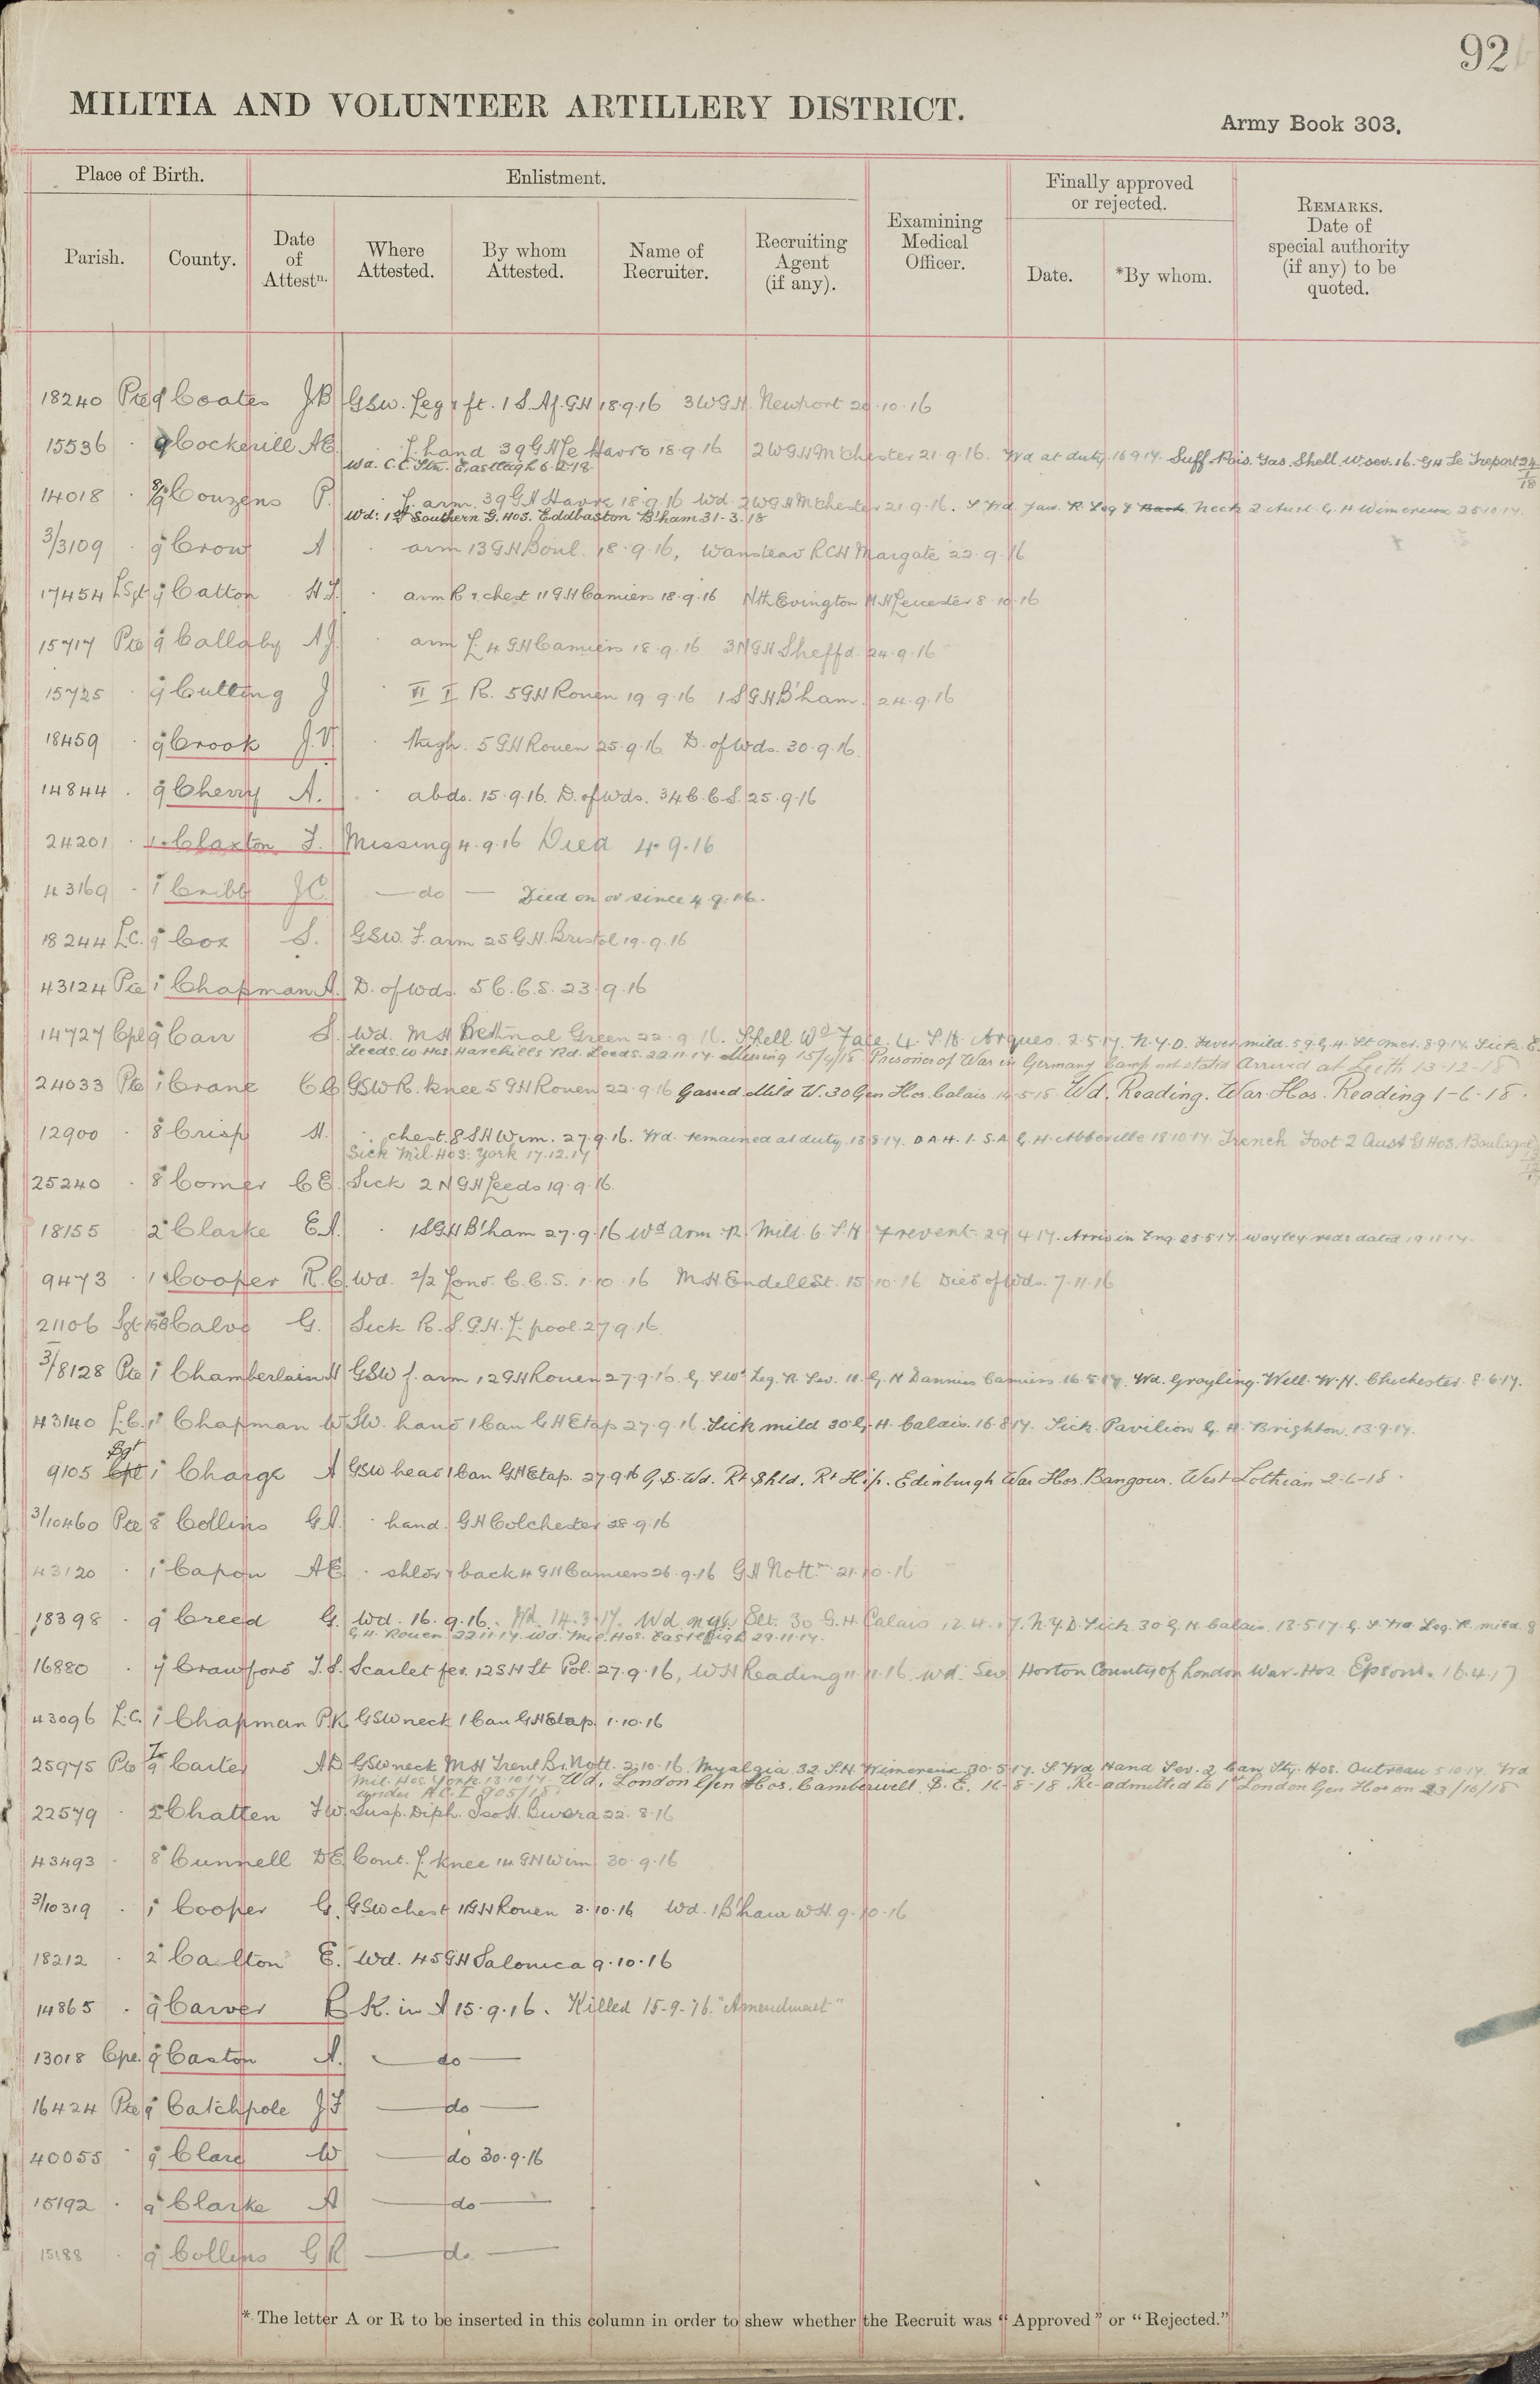 92
MILITIA AND VOLUNTEER ARTILLERY DISTRICT.
Army Book 303.
Place of Birth.
Enlistment.
Finally approved or rejected.
Parish.
County.
Date of Attestn.
Where Attested.
By whom Attested.
Name of Recruiter.
Recruiting Agent (if any).
Examining Medical Officer.
Date.
*By whom.
REMARKS. Date of special authority (if any) to be quoted.
18240 Pte 9 Coates J B GSW. Leg & ft. 1 S. Af. GH 18.9.16 3 W G H. Newport 20.10.16
15536 . 9 Cockerill A E. . L. hand 39 GH Le Havre 18.9.16 2 W G H M'chester 21.9.16. Wd at duty 16.9.17. Suff. Pois. Gas. Shell. W. sev. 16. GH Le Treport
Wd. C.C. Stn. Eastleigh 6.
14018 . 8/9 Couzens P. . L. arm. 39 GH Havre 18.9.16 Wd. 2 W G H M'chester 21.9.16. S Wd. Jaw. R. Leg & Back. Neck 2 Aust. G. H Wimereux 25.10.17.
Wd: 1st Southern G. Hos. Eddbaston B'ham 31-3-18
3/3109 . 9 Crow A . arm 13 GH Boul. 18.9.16, Wanstead R C H Margate 22.9.16
17454 L Sgt 9 Catton H J. . arm R & chest 11 GH Camiers 18.9.16 Nth Evington W H Leicester 8.10.16
15717 Pte 9 Callaby A J. . arm L. 4 GH Camiers 18.9.16 3 N G H Sheffd. 24.9.16
15725 . 9 Cutting J . VI I R. 5 GH Rouen 19.9.16 1 S G H B'ham. 24.9.16
18459 . 9 Crook J. V . thigh. 5 GH Rouen 25.9.16 D. of Wds. 30.9.16.
14844 . 9 Cherry A. . abdo. 15.9.16. D. of Wds. 34 C.C.S. 25.9.16
24201 . 1. Claxton F. Missing 4.9.16 Died 4.9.16
43169 . 1 Cribb J C. —do— Died on or since 4.9.16.
18244 L.C. 9 Cox S. GSW. F. arm 2 S G.H. Bristol 19.9.16
43124 Pte 1 Chapman A. D. of Wds. 5 C.C.S. 23.9.16
14727 Cpl 9 Carr S. Wd. M H Bethnal Green 22.9.16. Shell Wd Face. 4. S. H. Arques. 2.5.17. N.Y.D. Fever mild. 59. G.H. St Omer. 8.9.17. Sick. E.
Leeds. W Hos. Harehills Rd. Leeds. 22.11.17. Missing 15/4/18. Prisoner of War in Germany Camp not stated Arrived at Leith 13-12-18
24033 Pte 1 Crane C C GSW R. knee 5 GH Rouen 22.9.16 Gassed Mild W. 30 Gen Hos. Calais 14.5.18 Wd. Reading. War. Hos. Reading 1-6-18.
12900 . 8 Crisp H. . chest. 8 S H Wim. 27.9.16. Wd. remained at duty. 13.8.17. D A H. 1. S.A. G. H. Abbeville 18.10.17. Trench Foot 2 Aust G Hos. Boulogne
Sick Mil. Hos: York 17.12.17
25240 . 8 Comer C E. Sick 2 N G H Leeds 19.9.16.
18155 2 Clarke E A. . 1 S G H B'ham 27.9.16 Wd arm. R. Mild. 6. S. H. Frevent. 29.4.17. Arriv in Eng. 25.5.17
9473 . 1 Cooper R. C. Wd. 2/2 Lond. C.C.S. 1.10.16 M H. Endell St. 15.10.16 Died of Wds. 7.11.16
21106 Sgt Calvo G. Sick R. S. G. H. L'pool. 27.9.16.
3/8128 Pte 1 Chamberlain H GSW f. arm 12 GH Rouen 27.9.16. G. S Wd Leg. R. Sev. 11. G. H Dannes Camiers 16.5.17. Wd. Grayling. Well. W.H. Chichester. 8.6.17.
43140 L.C. 1 Chapman W. SW. hand 1 Can G H Etap 27.9.16. Sick mild 30 G. H. Calais. 16.8.17. Sick Pavilion G. H. Brighton. 13.9.17.
9105 Sgt 1 Charge A GSW head 1 Can GH Etap. 27.9.16 G.S. Wd. Rt Shld. Rt Hip. Edinburgh War Hos. Bangour. West Lothian 2-6-18.
3/10460 Pte 8 Collins G A. . hand. GH Colchester 28.9.16
43120 . 1 Capon A E. . shldr & back 4 GH Camiers 26.9.16 G H Nottm 21.10.16
18398 . 9 Creed G. Wd. 16.9.16. Wd. 14.3.17. Wd. 30 G.H. Calais 12.4.17. N.Y.D. Sick. 30 G. H. Calais. 13.5.17. G. S Wd. Leg. R. mild. 8
G.H. Rouen 22.11.17. Wd. Mil. Hos. Eastleigh 29.11.17.
16880 . 7 Crawford T. S. Scarlet fev. 12 S H St Pol. 27.9.16, W H Reading 11.11.16 Wd. Sev Horton County of London War. Hos. Epsom. 16.4.17
43096 L.C. 1 Chapman P. K. GSW neck 1 Can G H Etap. 1.10.16
25975 Pte 7/9 Carter A D GSW neck M H Trent Br. Nott. 2.10.16. Myalgia 32. S.H. Wimereux 30.5.17. S Wd Hand Sev. 2 Can Sty. Hos. Outreau 5.10.17. Wd
Mil. Hos. York 13.10.17. Wd. London Gen Hos. Camberwell. S.E. 16-8-18. Re-admitted to 1st London Gen Hos on 23/10/18
under A C I 905/18
22579 . 2 Chatten F W. Susp. Diph. Iso H. Bwera 22.8.16
43493 . 8 Cunnell D E. Cont. L knee 14 GH Wim 30.9.16
3/10319 . 1 Cooper G. GSW chest 11 GH Rouen 3.10.16 Wd. 1 B'ham W H. 9.10.16
18212 . 2 Carlton E. Wd. 45 GH Salonica 9.10.16
14865 . 9 Carver R K. in A 15.9.16. Killed 15-9-16. "Amendment"
13018 Cpl. 9 Caston A. —do—
16424 Pte 9 Catchpole J F —do—
40055 . 9 Clare W —do 30.9.16
15192 . 9 Clarke A —do—
15188 . 9 Collins G R —do—
* The letter A or R to be inserted in this column in order to shew whether the Recruit was "Approved" or "Rejected."